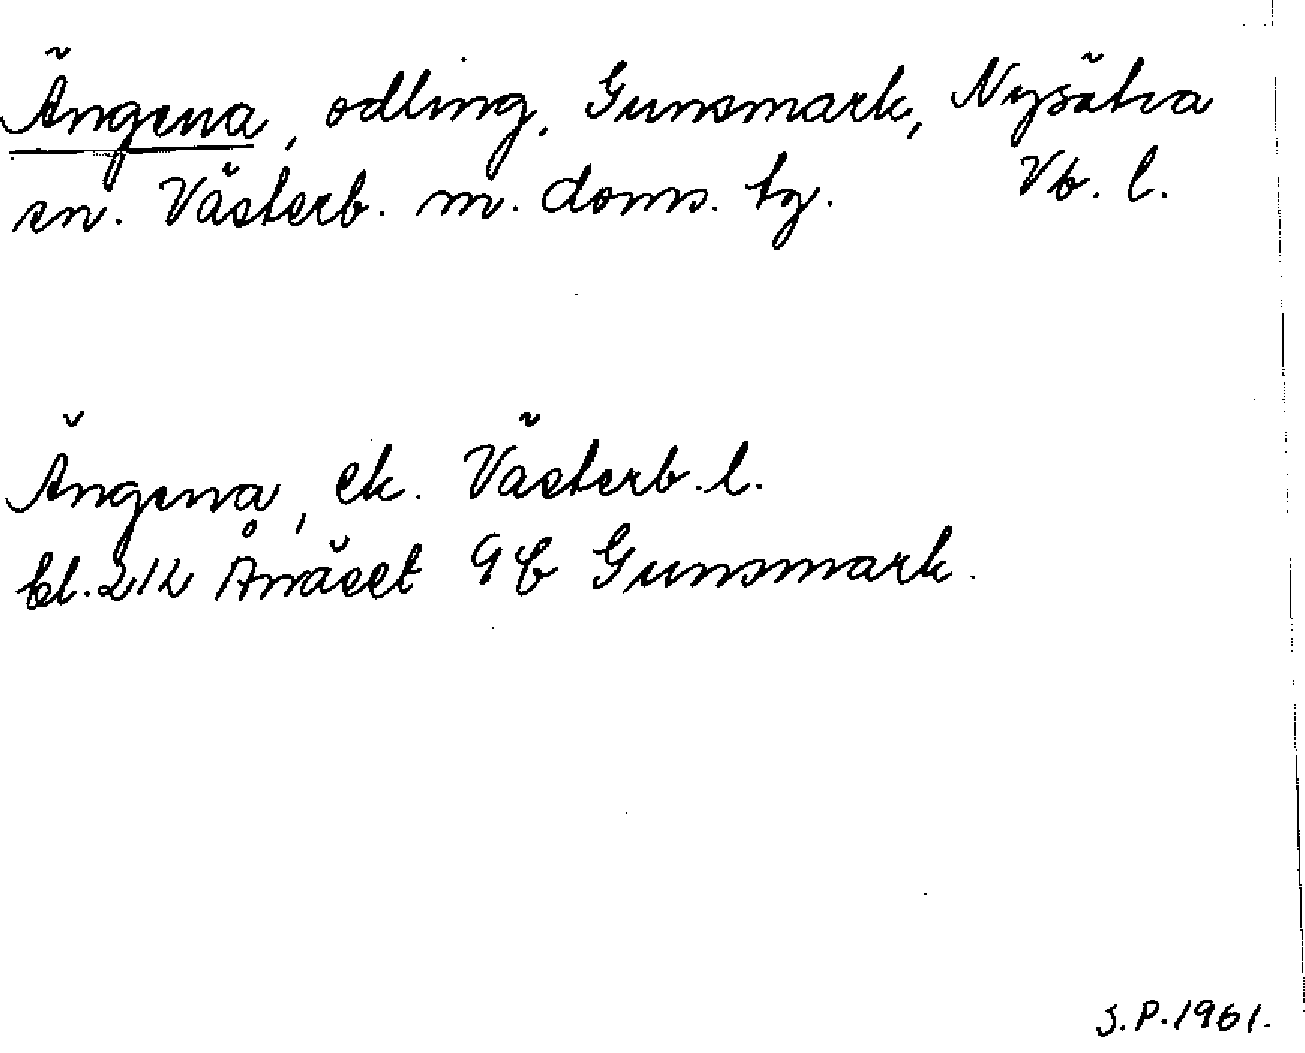 Ängena, odling, Gunsmark, Nysätra
sn. Västerb. m. doms. tg. Vb. l.
Ängena, ek. Västerb. l.
bl. 212 Ånäset 9 b Gunsmark.
S.P. 1961.